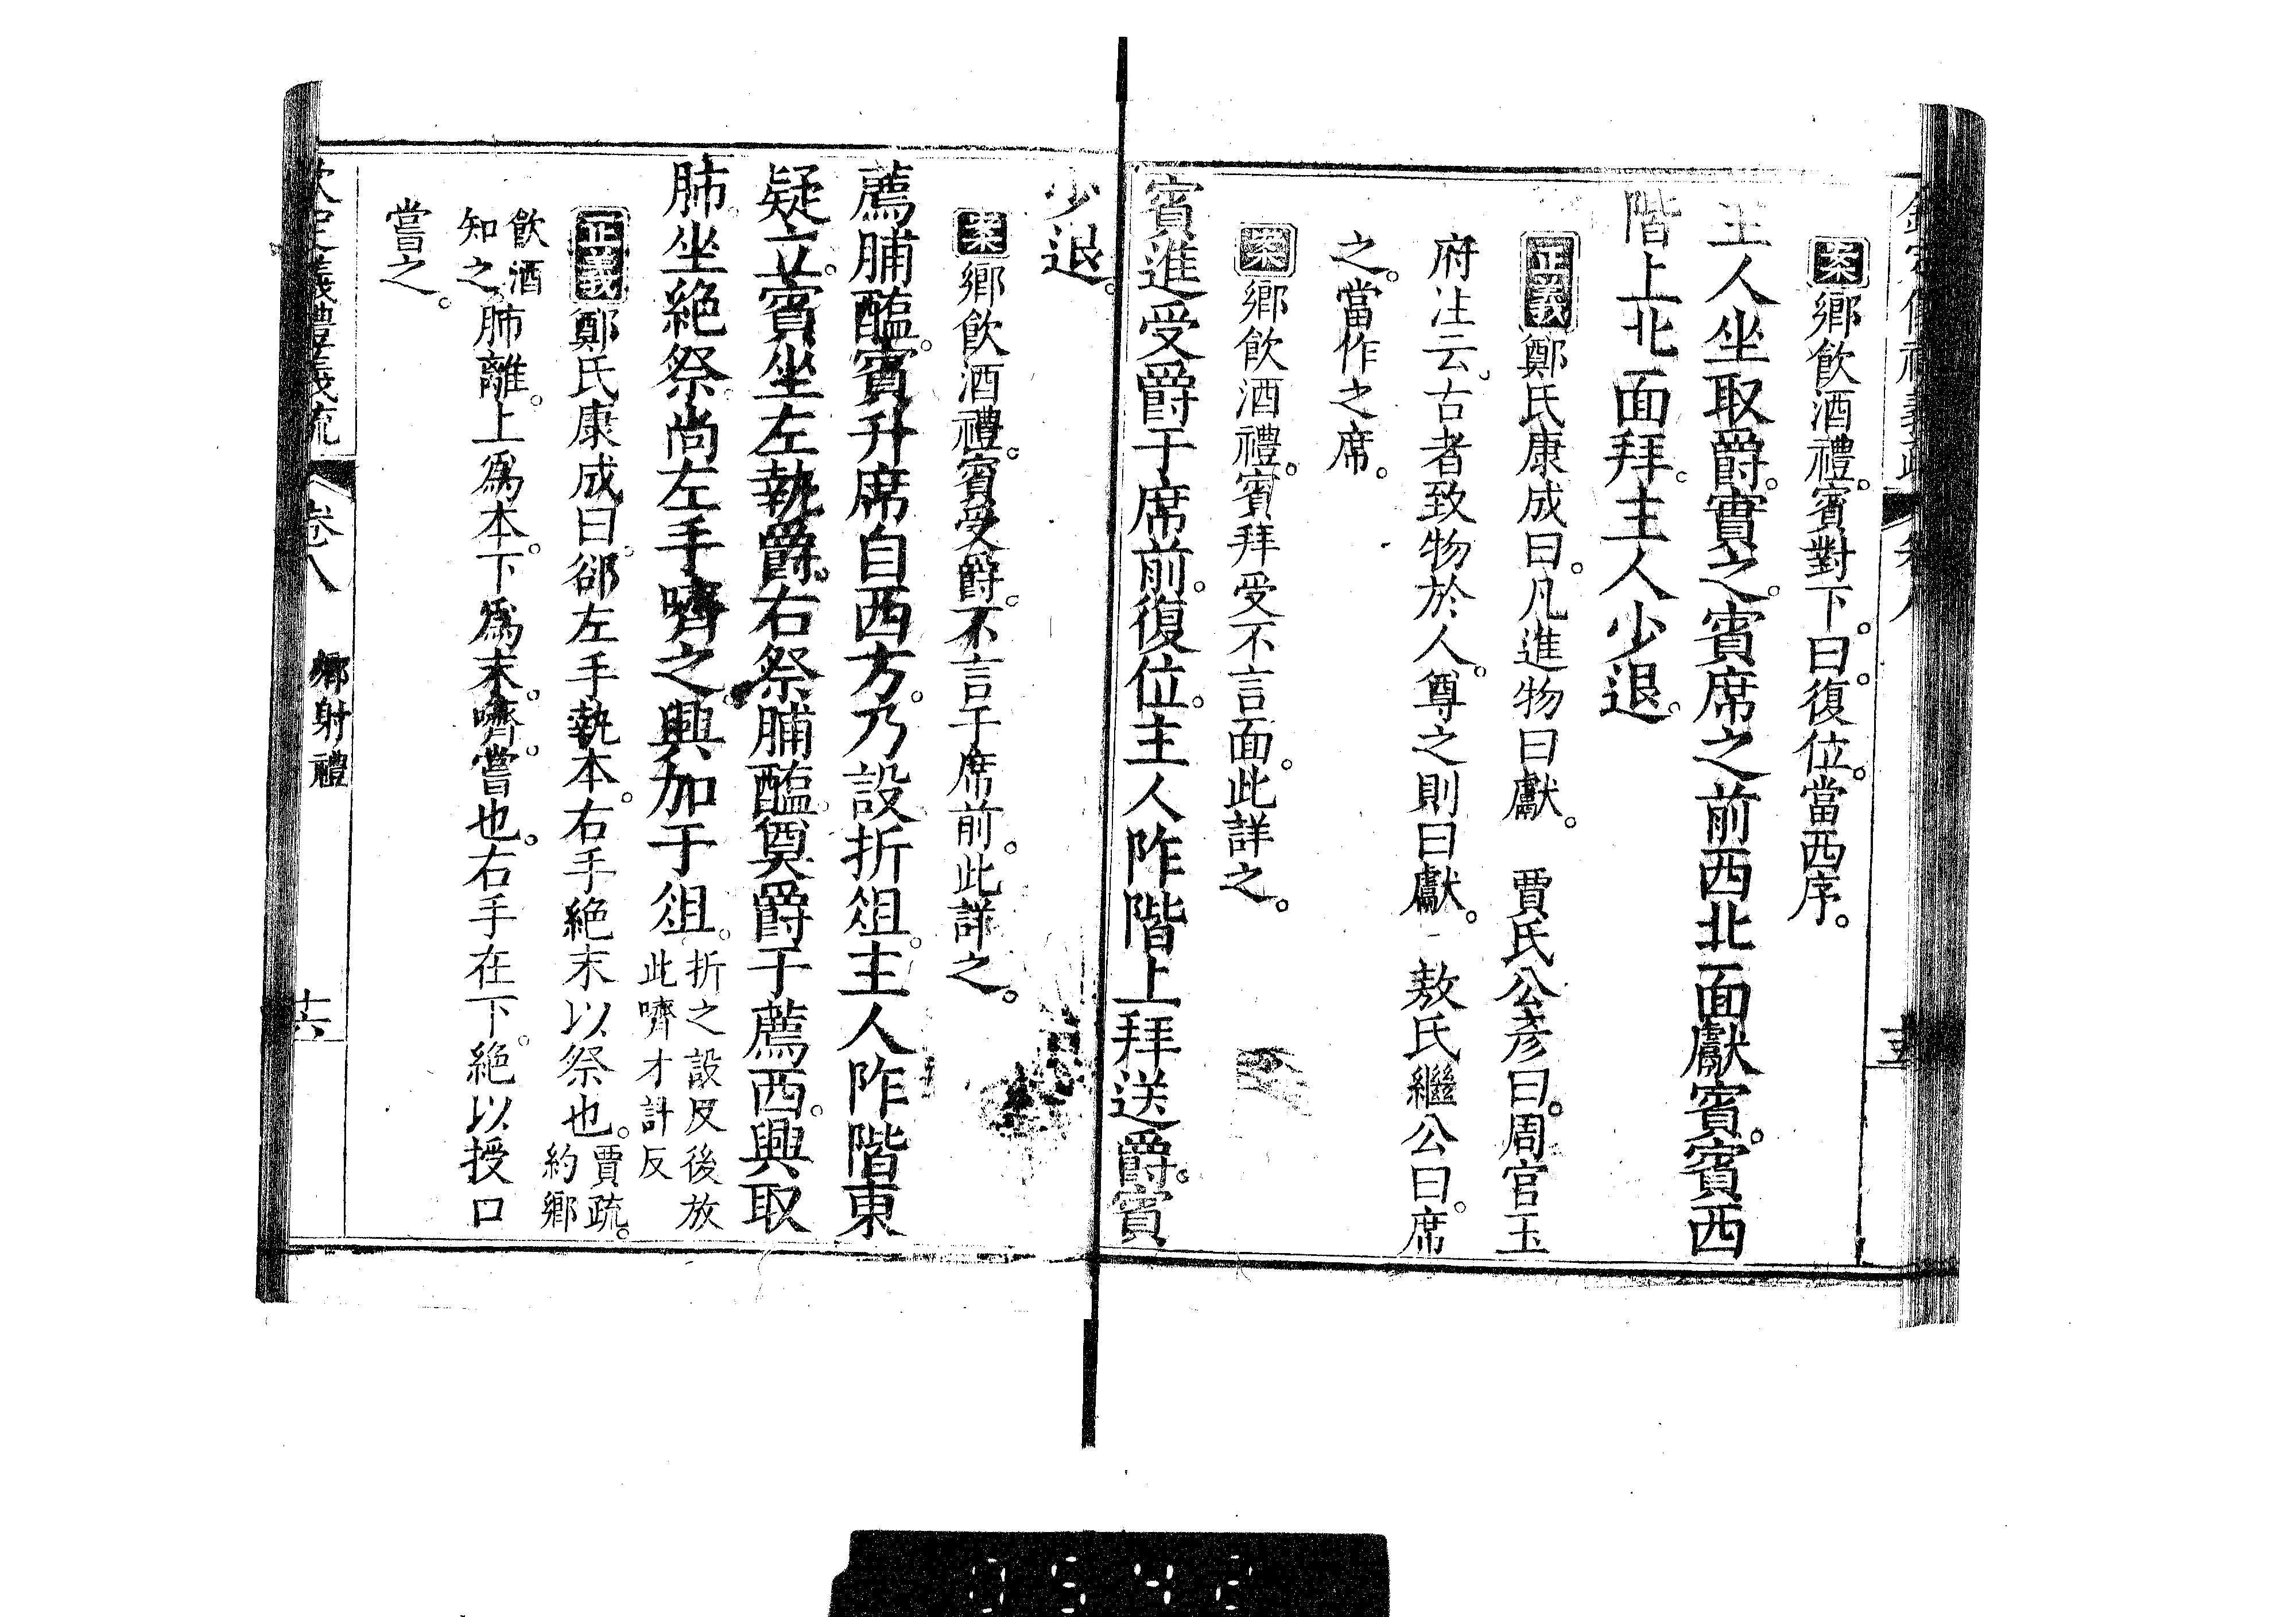 案鄉飲酒禮。賓對下。曰。復位。當西序。
主人坐取爵。實之。賓席之前西北面獻賓。賓西
階上北面拜。主人少退。
正義鄭氏康成曰。凡進物曰獻。 賈氏公彥曰。周官玉
府注云。古者致物於人。尊之則曰獻。 敖氏繼公曰。席
之。當作之席。
案鄉飲酒禮。賓拜受不言面。此詳之。
賓進受爵于席前。復位。主人阼階上拜送爵。賓
少退。
案鄉飲酒禮。賓受爵。不言于席前。此詳之。
薦脯醢。賓升席自西方。乃設折俎。主人阼階東
疑立。賓坐左執爵。右祭脯醢。奠爵于薦西。興取
肺。坐絕祭。尚左手嚌之。興加于俎。折之設反後放
此嚌才計反
正義鄭氏康成曰。卻左手執本。右手絕末以祭也。賈疏。
約鄉
飲酒
知之。肺離。上為本。下為末。嚌。嘗也。右手在下。絕以授口
嘗之。
義禮義疏
卷八
鄉射禮
十六